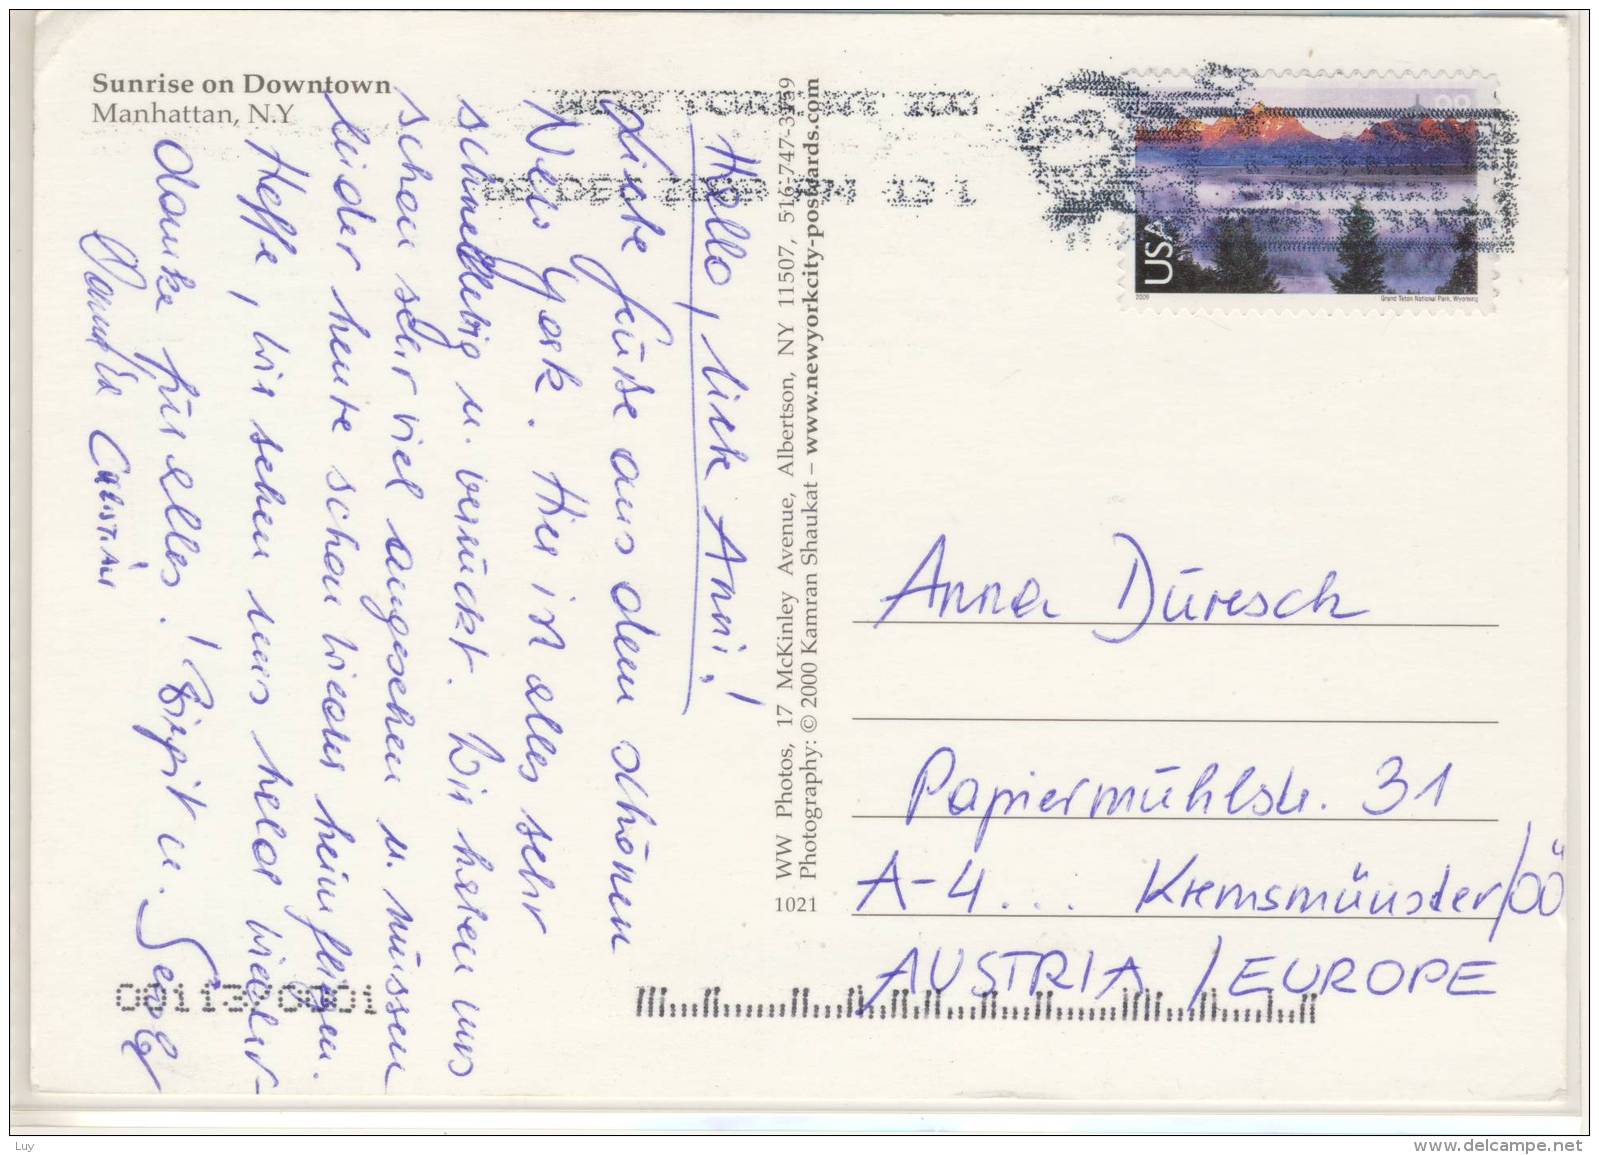 Sunrise on Downtown
Manhattan, N.Y
Hallo, liebe Anni!
Liebe Grüße aus dem schönen
New York. Hier ist alles sehr
schnelllebig u. verrückt. Wir haben uns
schon sehr viel angesehen u. müssen
leider heute schon wieder heimfliegen.
Hoffe, wir sehen uns bald wieder
Danke für alles! Birgit u.
Christian
1021 WW Photos, 17 McKinley Avenue, Albertson, NY 11507, 516-747-3759
Photography: © 2000 Kamran Shaukat – www.newyorkcity-postcards.com
USA
2009
Grand Teton National Park, Wyoming
Anna Düresch
Papiermühlstr. 31
A-4... Kremsmünster/OÖ
AUSTRIA / EUROPE
Luy
www.delcampe.net